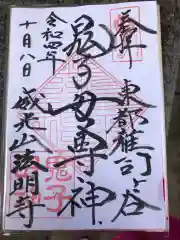 奉拝
東都雑司ヶ谷
鬼子母尊神
威光山法明寺
令和四年
十月八日